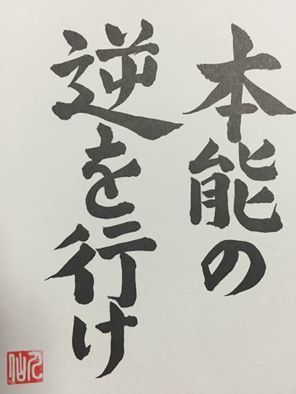 本能の
逆を行け